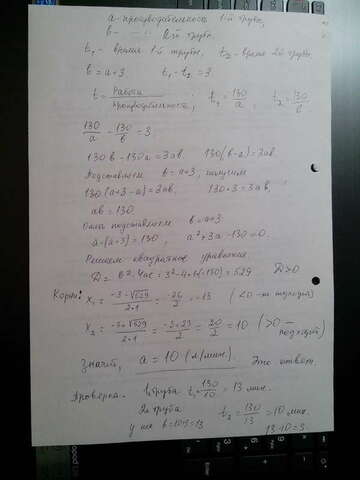 a - производительность 1-й трубы,
b - 2-й трубы.
t₁ - время 1-й трубы, t₂ - время 2й трубы
b = a+3. t₁ - t₂ = 3.
t = Работа / производительность, t₁ = 130/a, t₂ = 130/b
130/a - 130/b = 3
130b - 130a = 3ab 130(b-a) = 3ab,
Подставляем b = a+3, получим
130(a+3-a) = 3ab, 130·3 = 3ab,
ab = 130.
подставляем b = a+3
a·(a+3) = 130, a²+3a-130=0.
Решаем квадратное уравнение
D = b²-4ac = 3²-4·1·(-130) = 529 D>0
Корни: x₁ = (-3-√529)/(2·1) = -26/2 = -13 (<0 - не подходит)
x₂ = (-3+√529)/(2·1) = (-3+23)/2 = 20/2 = 10 (>0 - подходит)
Значит, a = 10 (л/мин). Это ответ
Проверка. 1я труба t₁ = 130/10 = 13 мин.
2я труба t₂ = 130/13 = 10 мин.
у нее b = 10+3 = 13 13-10=3.